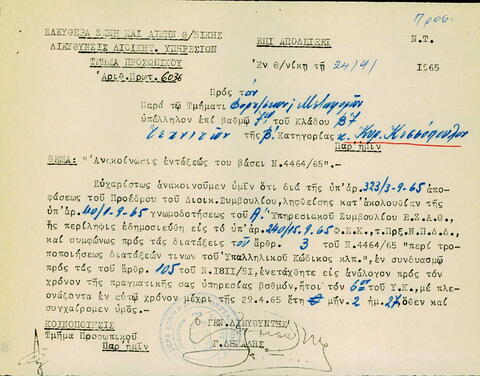 Προσ.
ΕΛΕΥΘΕΡΑ ΖΩΝΗ ΚΑΙ ΛΙΜΗΝ Θ/ΝΙΚΗΣ
ΔΙΕΥΘΥΝΣΙΣ ΔΙΟΙΚΗΤ. ΥΠΗΡΕΣΙΩΝ ΕΠΙ ΑΠΟΔΕΙΞΕΙ Ν.Τ.
ΤΜΗΜΑ ΠΡΟΣΩΠΙΚΟΥ
Ἀριθ.Πρωτ. 6036 Ἐν Θ/νίκῃ τῇ 24/9/ 1965
Πρός τόν
Παρά τῷ Τμήματι Φορτ/σεων & Μεταφορῶν
ὑπάλληλον ἐπί βαθμῷ 7ῳ τοῦ Κλάδου Β7
Τεχνιτῶν τῆς Β' Κατηγορίας κ. Κυρ. Κεσσόπουλον
Παρ'ἡμῖν
ΘΕΜΑ: "Ἀνακοίνωσις ἐντάξεώς του βάσει Ν.4464/65".-
Εὐχαρίστως ἀνακοινοῦμεν ὑμῖν ὅτι διά τῆς ὑπ'ἀρ. 323/3-9-65 ἀπο-
φάσεως τοῦ Προέδρου τοῦ Διοικ.Συμβουλίου, ληφθείσης κατ'ἀκολουθίαν τῆς
ὑπ'ἀρ. 40/1-9-65 γνωμοδοτήσεως τοῦ Α' Ὑπηρεσιακοῦ Συμβουλίου Ε.Ζ.Λ.Θ.,
ἧς περίληψις ἐδημοσιεύθη εἰς τό ὑπ'ἀρ. 240/15.9.65 Φ.Ε.Κ.,τ.Πρξ.Ν.Π.Δ.Δ.,
καί συμφώνως πρός τάς διατάξεις τοῦ ἄρθρ. 3 τοῦ Ν.4464/65 "περί τρο-
ποποιήσεως διατάξεών τινων τοῦ Ὑπαλληλικοῦ Κώδικος κλπ.", ἐν συνδυασμῷ
πρός τάς τοῦ ἄρθρ. 105 τοῦ Ν.1811/51, ἐνετάχθητε εἰς ἀνάλογον πρός τόν
χρόνον τῆς πραγματικῆς σας ὑπηρεσίας βαθμόν, ἤτοι τόν 6ον τοῦ Υ.Κ., μέ πλεο-
νάζοντα ἐν αὐτῷ χρόνον μέχρι τῆς 29.4.65 ἔτη μῆν. 2 ἡμ. 27, ὅθεν καί
συγχαίρομεν ὑμᾶς.-
ΚΟΙΝΟΠΟΙΗΣΙΣ Ὁ ΓΕΝ.ΔΙΕΥΘΥΝΤΗΣ
Τμῆμα Προσωπικοῦ
Παρ'ἡμῖν